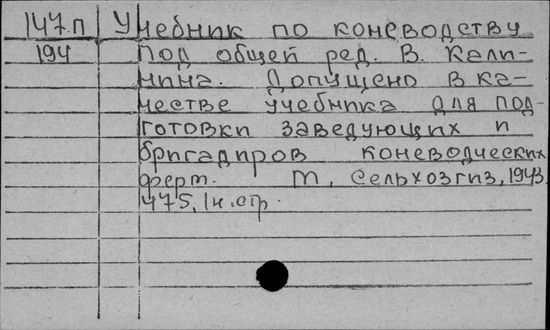 147.п Учебник по коневодству
194 Под общей ред. В. Кали-
нина. Допущено в ка-
честве учебника для под-
готовки заведующих и
бригадиров коневодческих
ферм. М, Сельхозгиз, 1943.
475, 1н. стр.